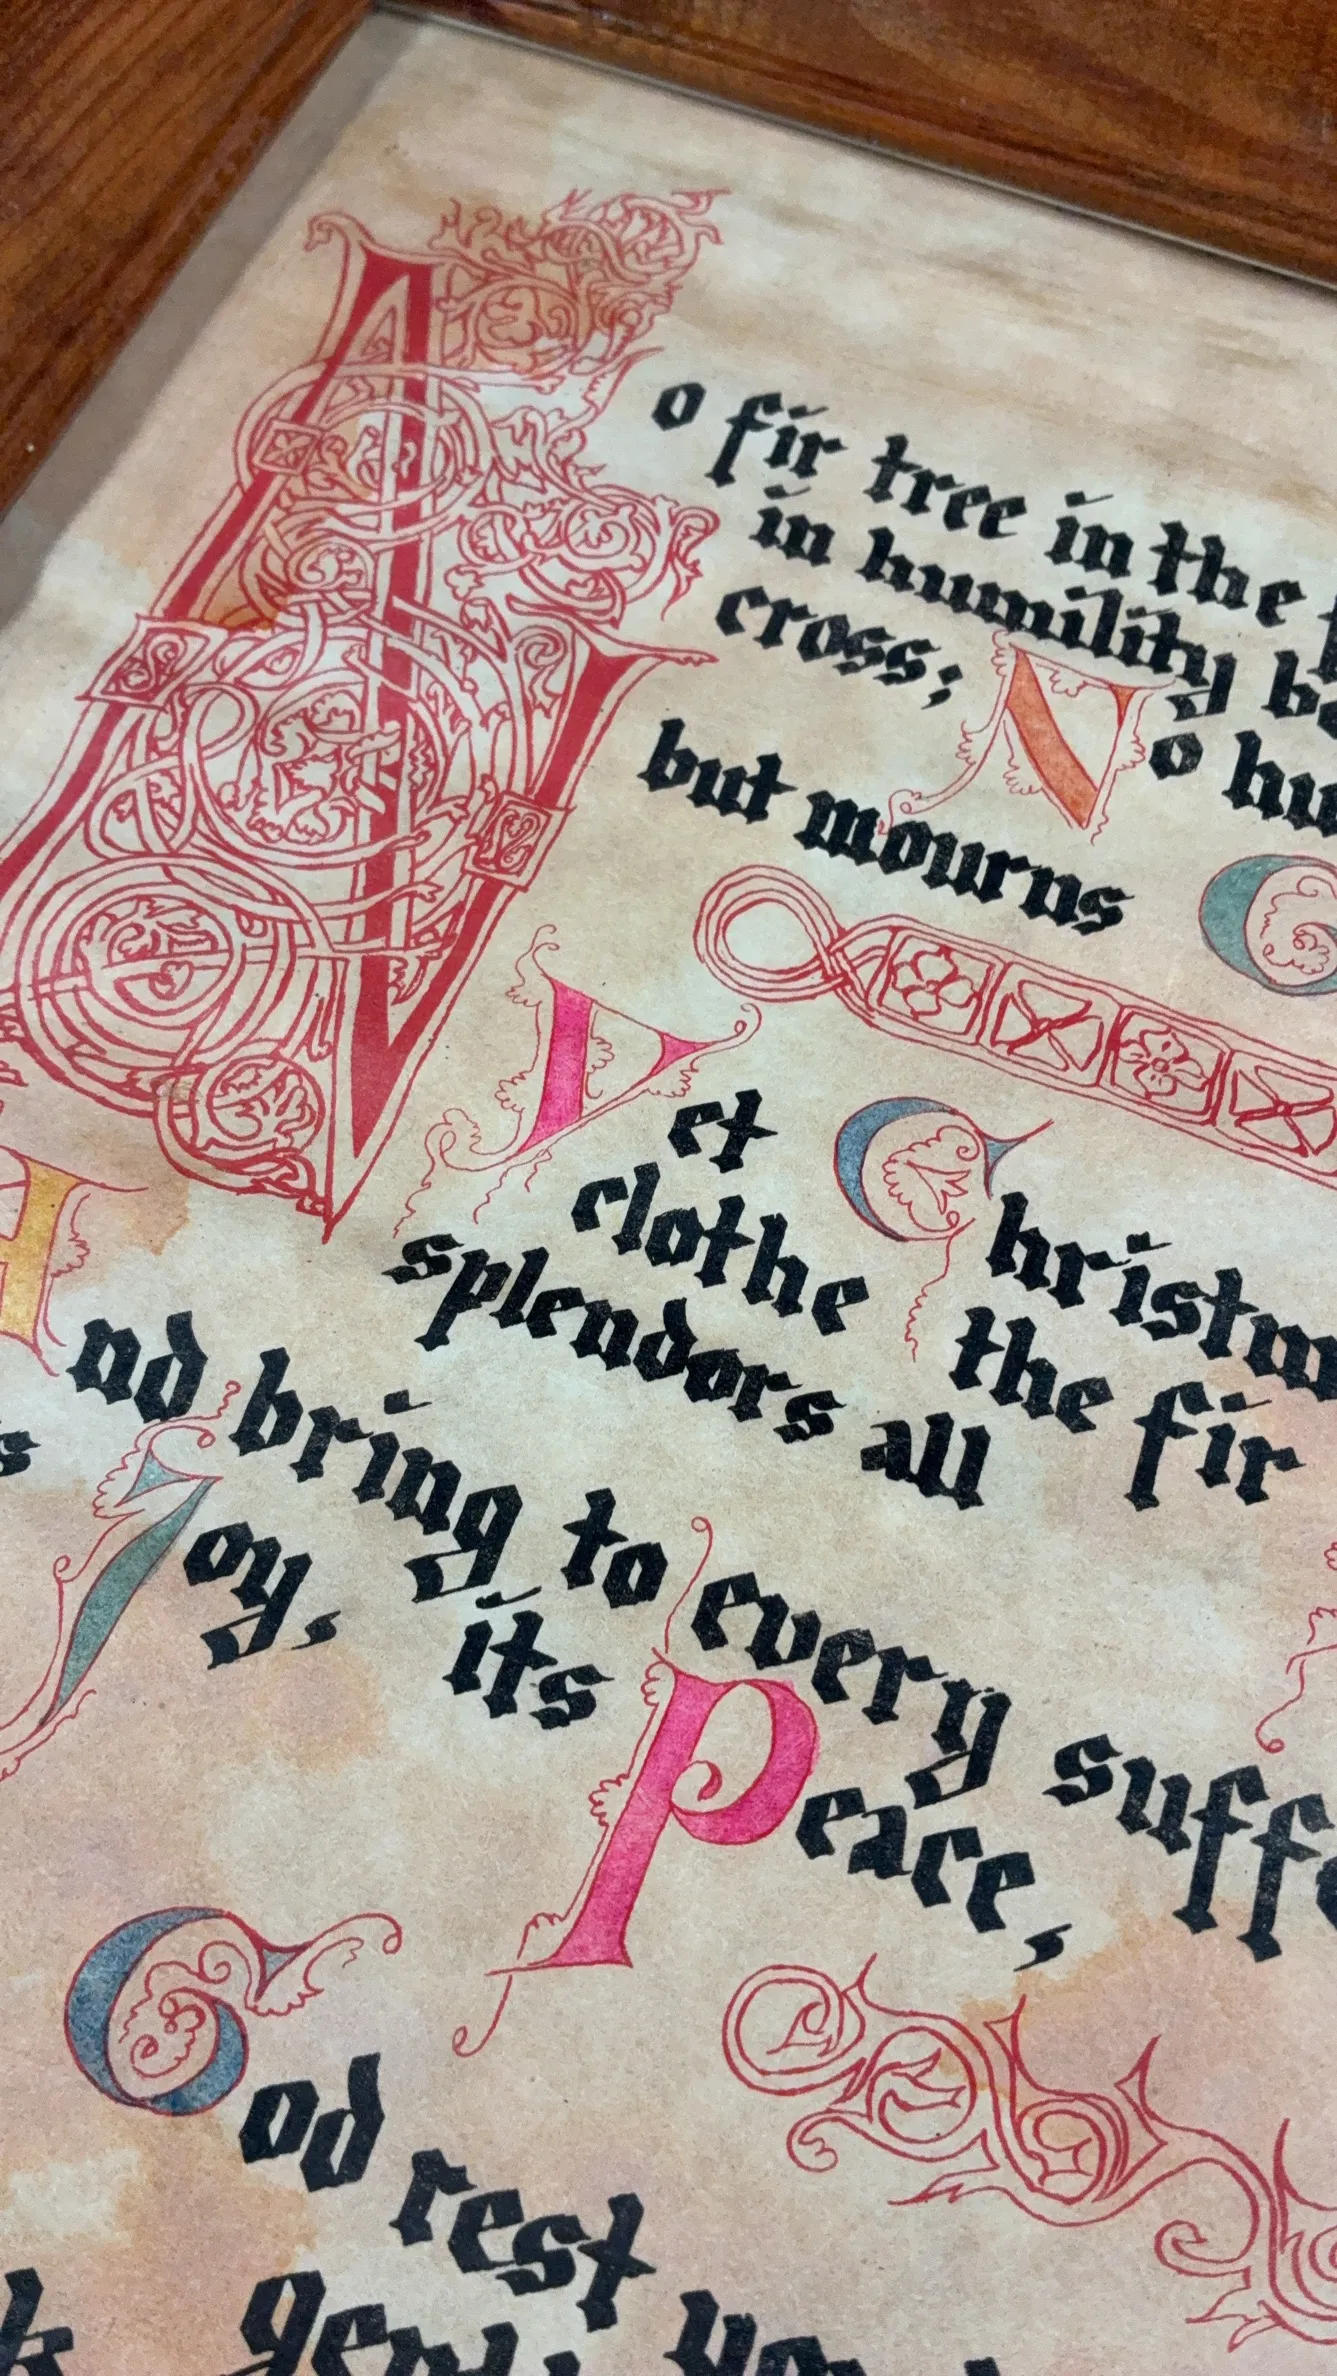 No fir tree in the
in humility
cross; No
but mourns
Yet
clothe the fir
splendors all
And bring to every
Joy, its Peace,
God rest